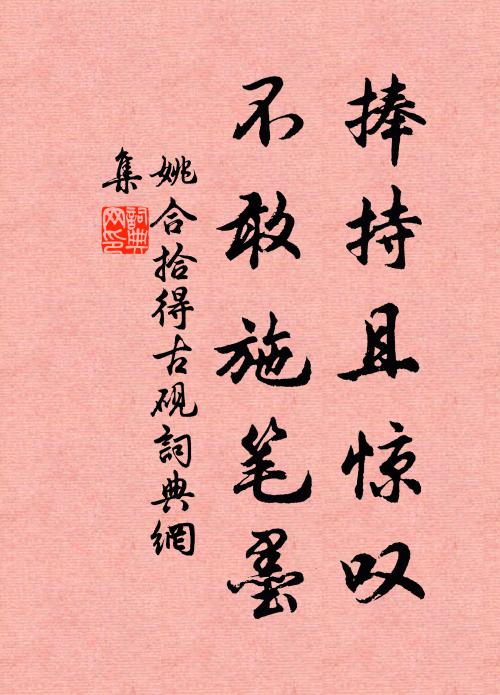 捧持且惊叹
不敢施笔墨
姚合拾得古砚詞典網
集
詞典网印